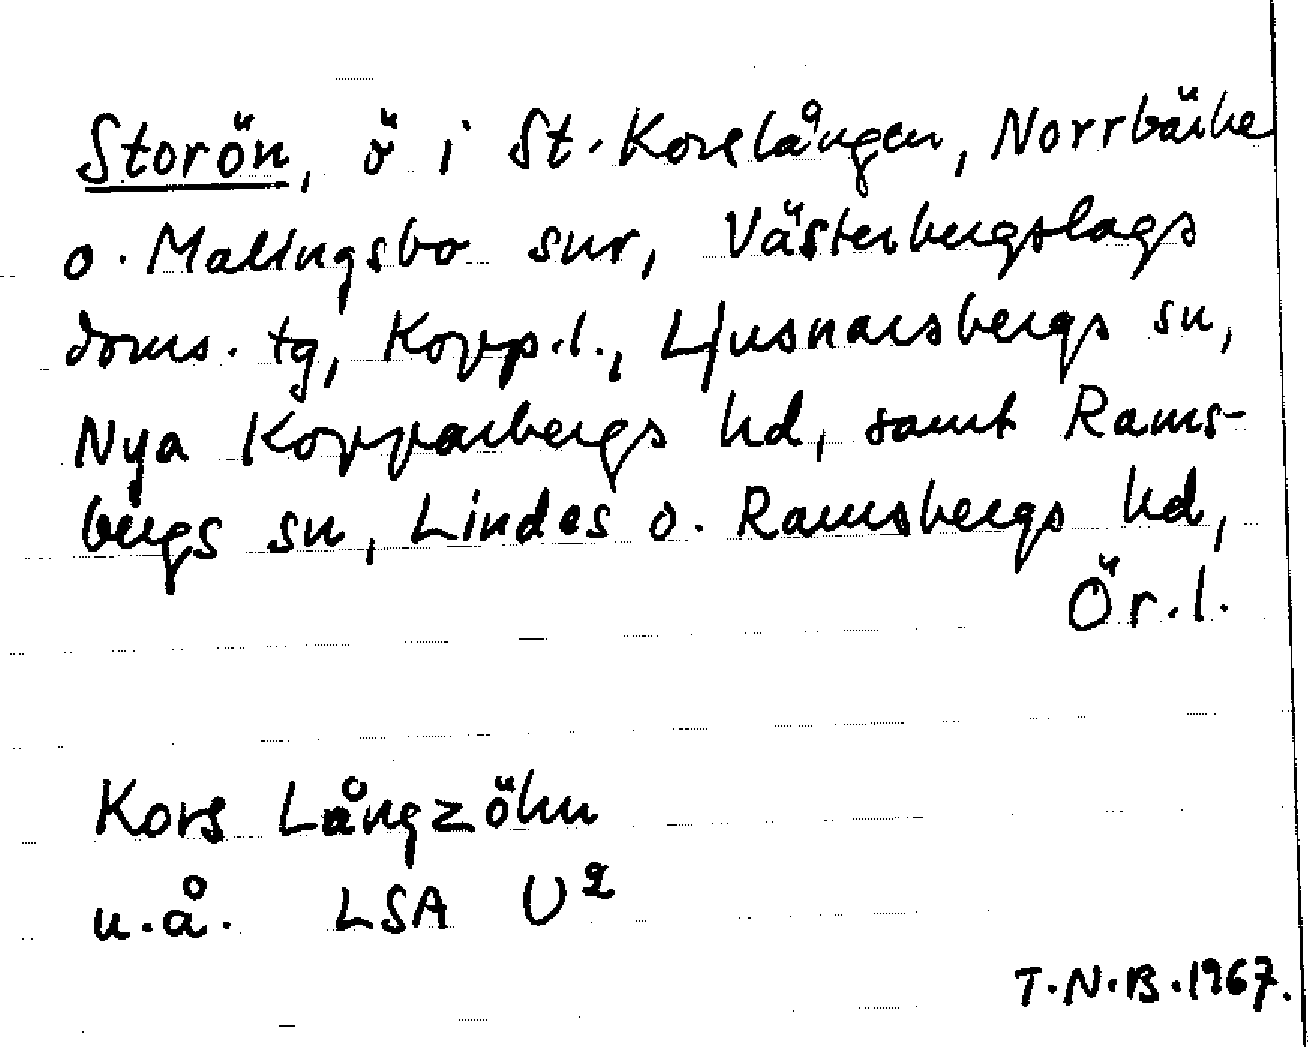 Storön, ö i St. Korslången, Norrbärke
o. Malingsbo snr, Västerbergslags
doms. tg, Kopp.l., Ljusnarsbergs sn,
Nya Kopparbergs hd, samt Rams-
bergs sn, Lindes o. Ramsbergs hd,
Ör.l.
Kors Långzöhn
u.å. LSA U2
T.N.B.1967.